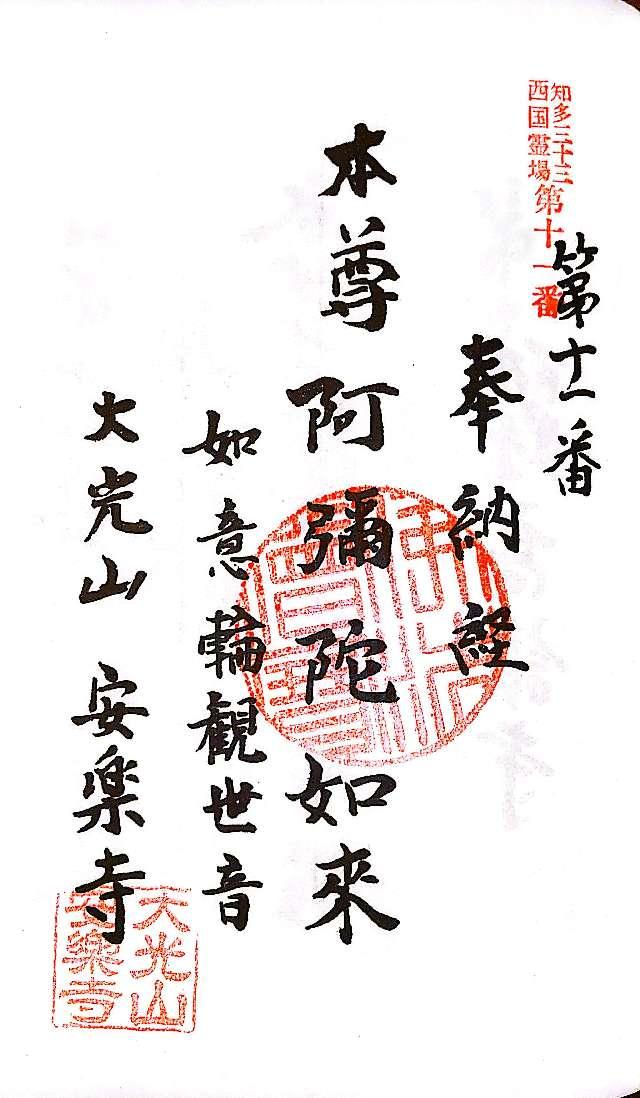 知多三十三
西国霊場第十一番
第十一番
奉納経
本尊阿彌陀如來
如意輪観世音
大光山 安楽寺
大光山
安楽寺